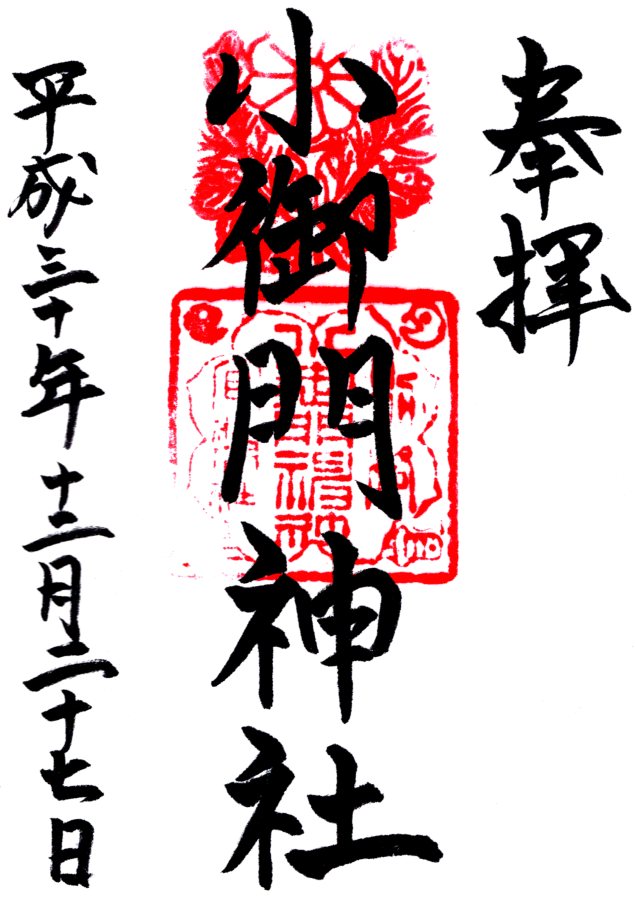 奉拝
小御門神社
平成三十年十二月二十七日